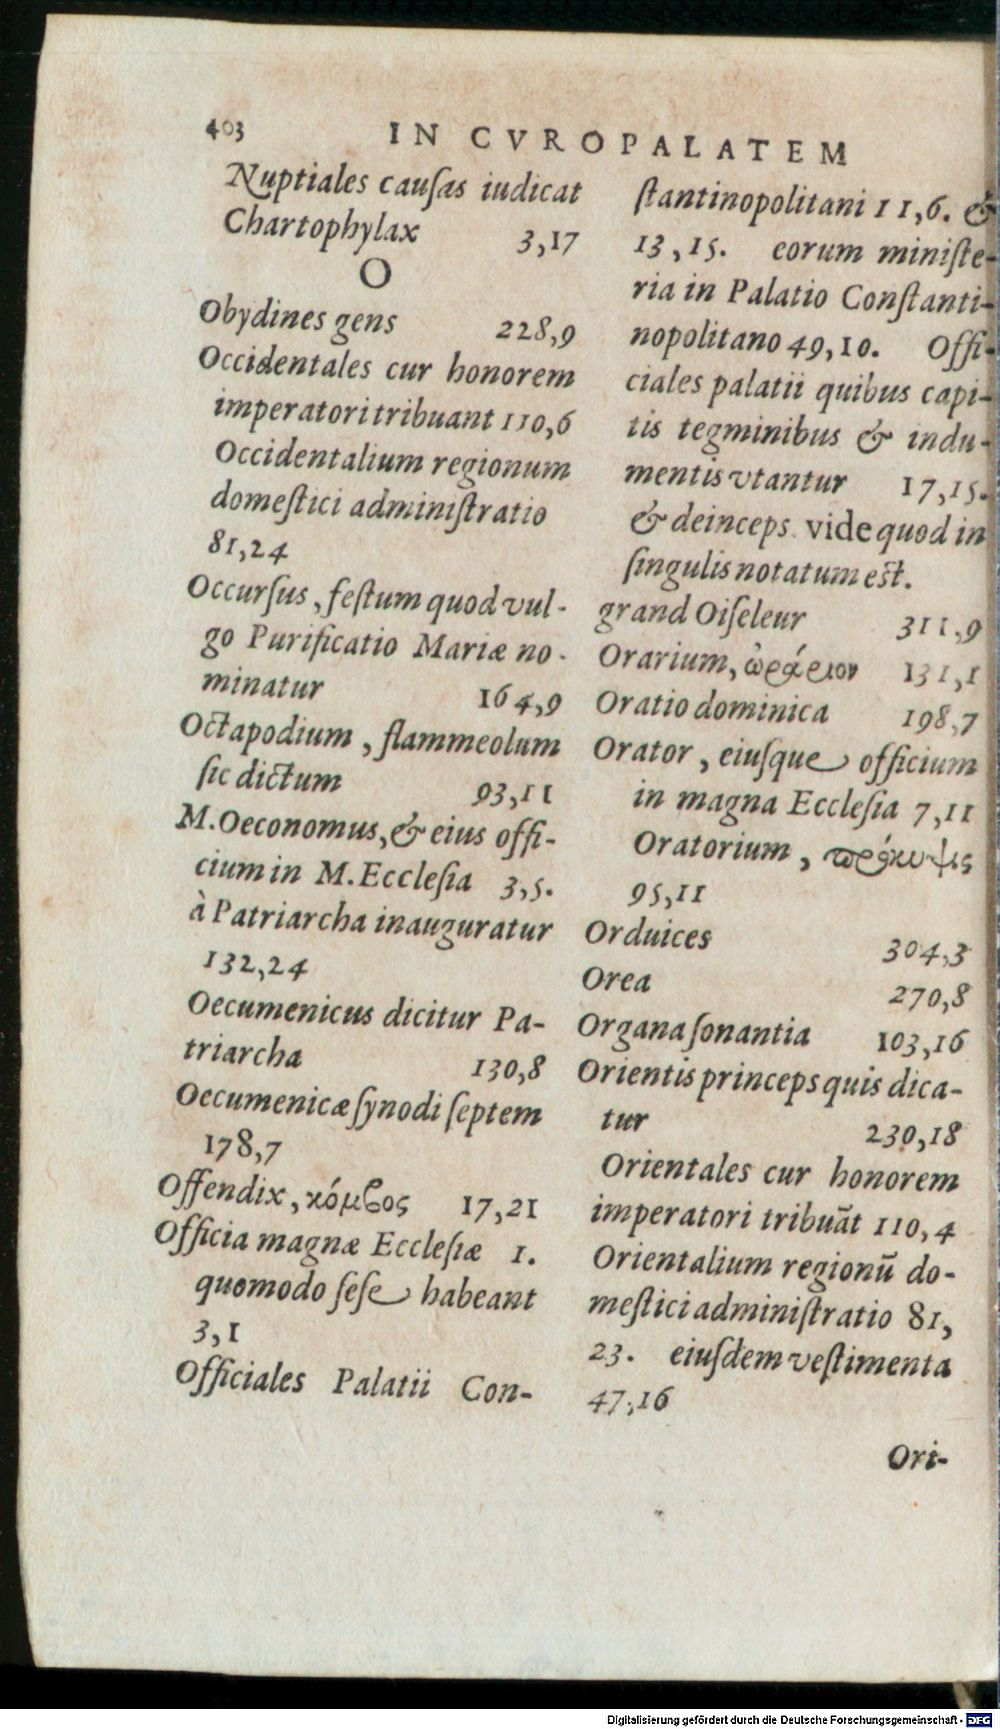 403 IN CVROPALATEM
Nuptiales cauſas iudicat
Chartophylax 3,17
O
Obydines gens 228,9
Occidentales cur honorem
imperatori tribuant 110,6
Occidentalium regionum
domeſtici adminiſtratio
81,24
Occurſus, feſtum quod vul-
go Purificatio Mariæ no-
minatur 164,9
Octapodium, flammeolum
ſic dictum 93,11
M.Oeconomus, & eius offi-
cium in M.Eccleſia 3,5.
à Patriarcha inauguratur
132,24
Oecumenicus dicitur Pa-
triarcha 130,8
Oecumenicæ ſynodi ſeptem
178,7
Offendix, κόμβος 17,21
Officia magnæ Eccleſiæ 1.
quomodo ſeſe habeant
3,1
Officiales Palatii Con-
ſtantinopolitani 11,6. &
13,15. eorum miniſte-
ria in Palatio Conſtanti-
nopolitano 49,10. Offi-
ciales palatii quibus capi-
tis tegminibus & indu-
mentis vtantur 17,15.
& deinceps. vide quod in
ſingulis notatum eſt.
grand Oiſeleur 311,9
Orarium, ὠράριον 131,1
Oratio dominica 198,7
Orator, eiuſque officium
in magna Eccleſia 7,11
Oratorium, πρόκυψις
95,11
Orduices 304,3
Orea 270,8
Organa ſonantia 103,16
Orientis princeps quis dica-
tur 230,18
Orientales cur honorem
imperatori tribuãt 110,4
Orientalium regionũ do-
meſtici adminiſtratio 81,
23. eiuſdem veſtimenta
47,16
Ori-
Digitalisierung gefördert durch die Deutsche Forschungsgemeinschaft - DFG